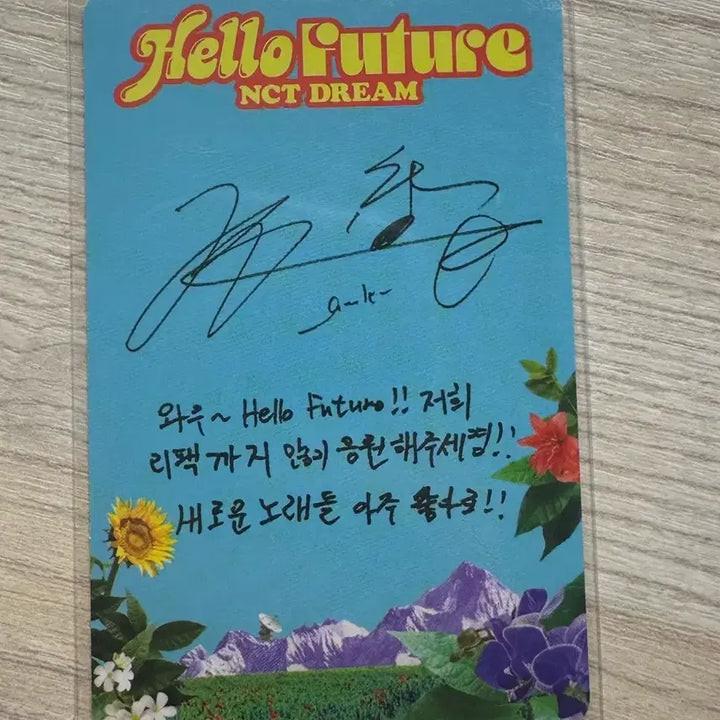 Hello Future
NCT DREAM
와우~ Hello Futuro!! 저희
리팩 까지 많이 응원해주세욥!!
새로운 노래들 아주 좋아요!!